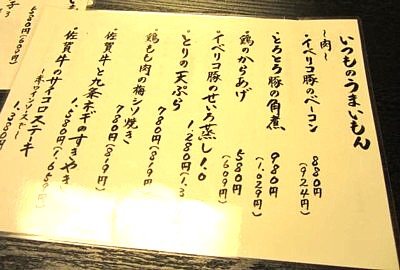 いつものうまいもん
〜肉〜
・イベリコ豚のベーコン 880円(924円)
・とろとろ豚の角煮 980円(1.029円)
・鶏のからあげ 580円(609円)
・イベリコ豚のせいろ蒸し
1.280円(1.3
・とりの天ぷら 780円(819円)
・鶏もも肉の梅シソ焼き
780円(819円)
・佐賀牛と九条ネギのすきやき
1.580円(1.659円)
・佐賀牛のサイコロステーキ
1.380円
580円(609円)